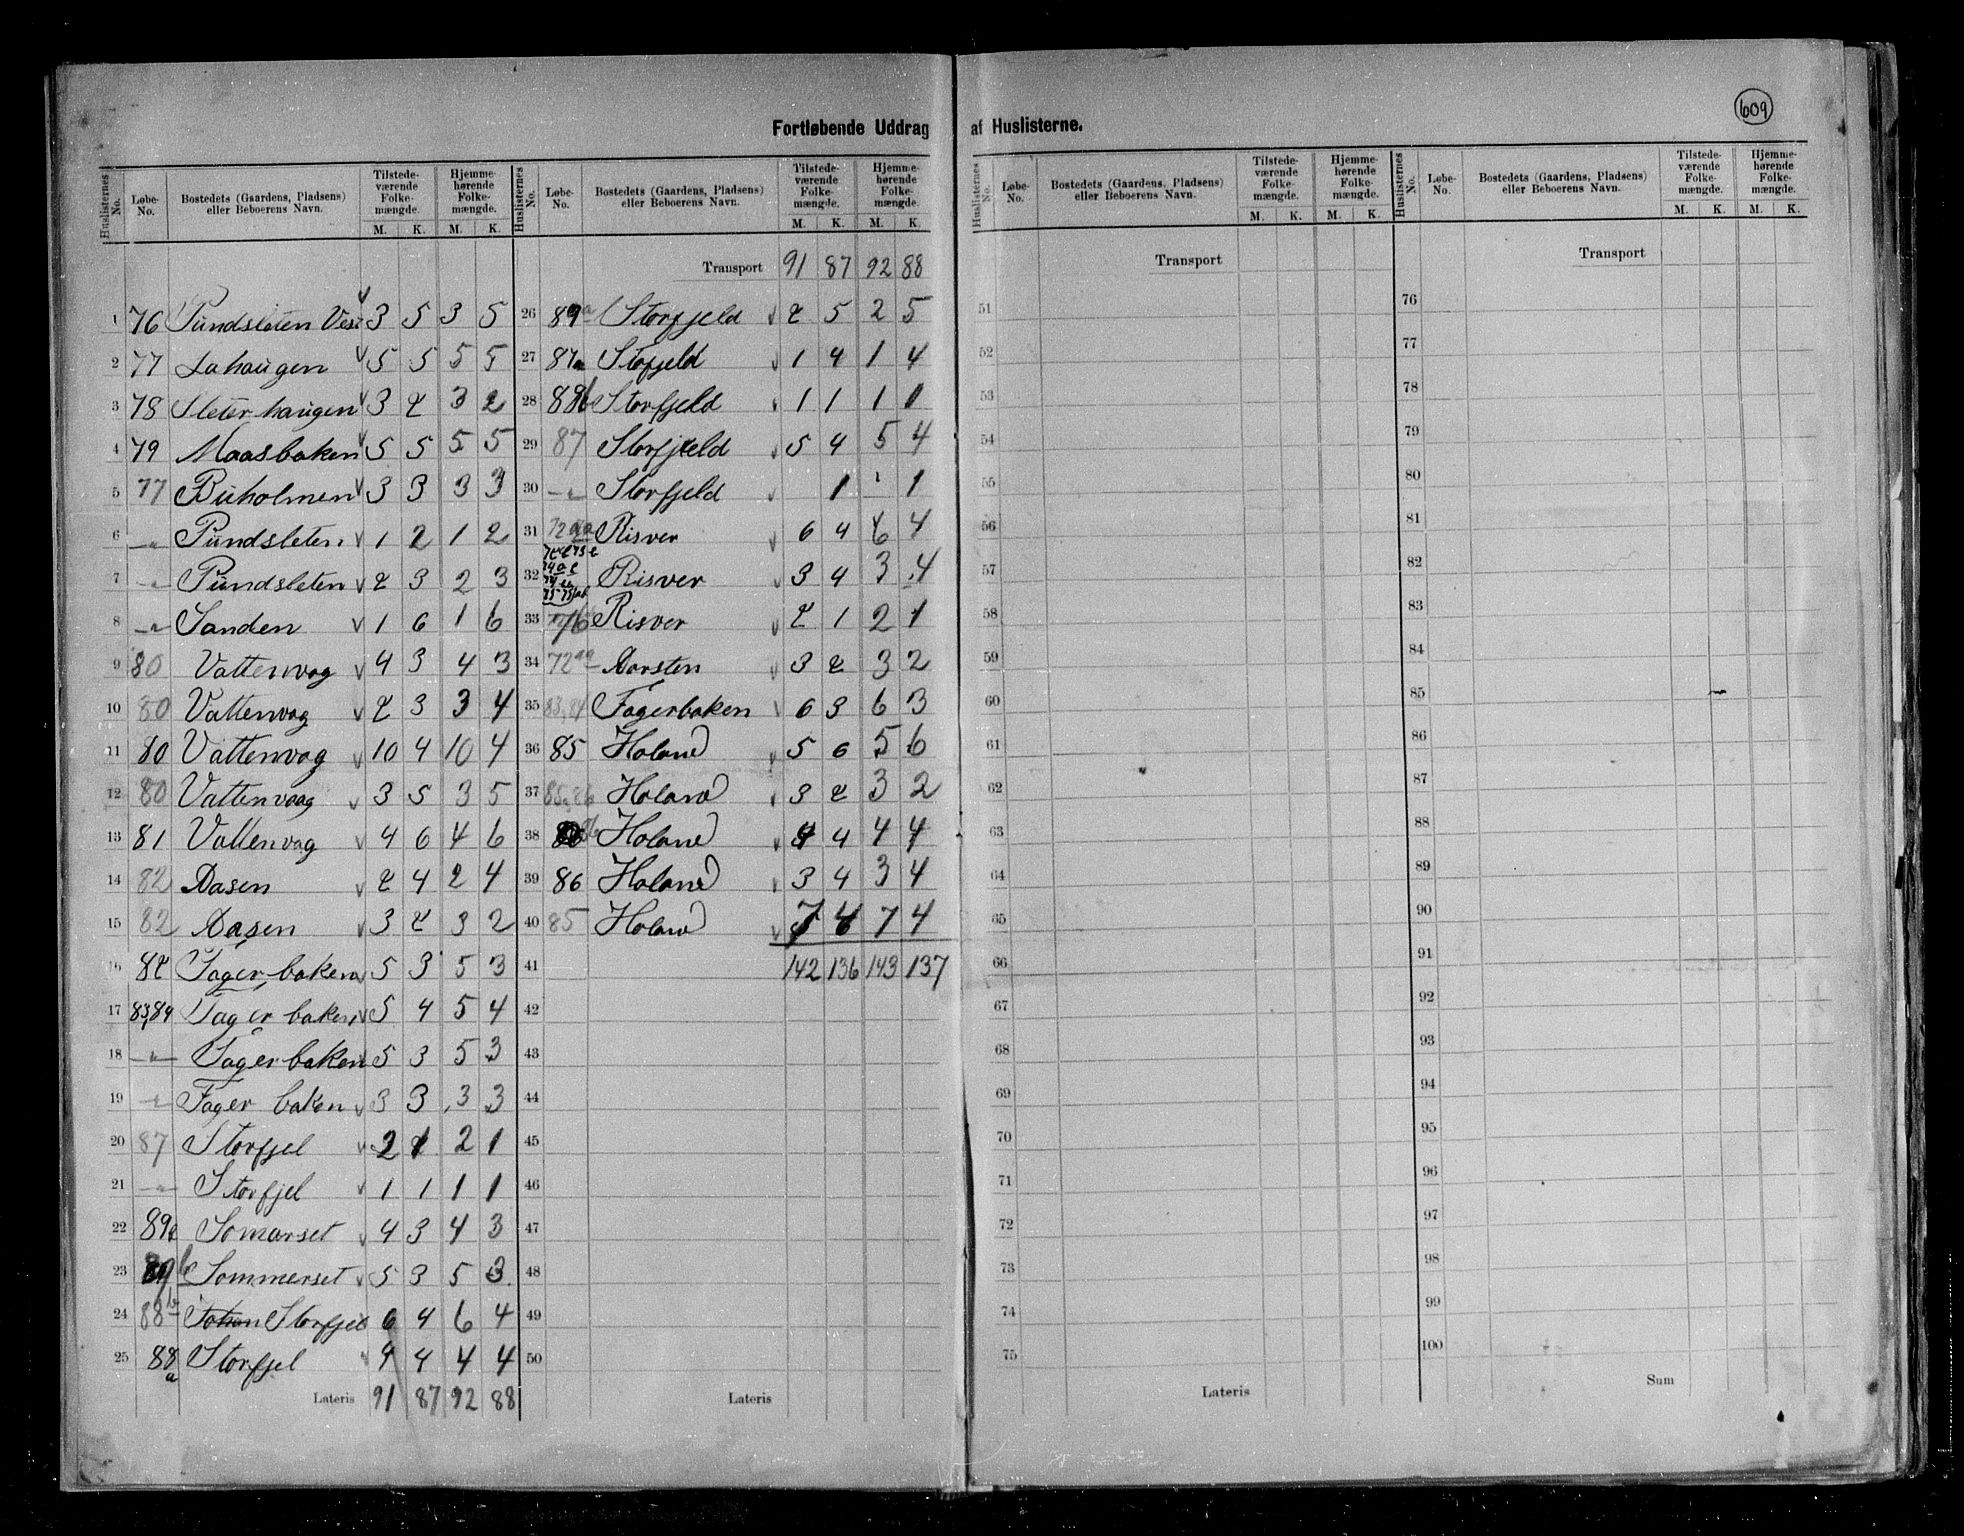 609
Fortløbende Uddrag af Huslisterne.
Huslisternes No. Løbe-No. Bostedets (Gaardens, Pladsens) eller Beboerens Navn. Tilstedeværende Folkemængde. M. K. Hjemmehørende Folkemængde. M. K.
1 76 Pundsleten Vest 3 5 3 5
2 77 Lahaugen 5 5 5 5
3 78 Sleterhaugen 3 2 3 2
4 79 Maasbaken 5 5 5 5
5 77 Buholmen 3 3 3 3
6 —"— Pundsleten 1 2 1 2
7 —"— Pundsleten 2 3 2 3
8 —"— Sanden 1 6 1 6
9 80 Vattenvag 4 3 4 3
10 80 Vattenvag 2 3 3 4
11 80 Vattenvag 10 4 10 4
12 80 Vattenvaag 3 5 3 5
13 81 Vattenvag 4 6 4 6
14 82 Aasen 2 4 2 4
15 82 Aasen 3 2 3 2
16 82 Fagerbaken 5 3 5 3
17 83,84 Fagerbaken 5 4 5 4
18 —"— Fagerbaken 5 3 5 3
19 —"— Fager baken 3 3 3 3
20 87 Storfjel 2 1 2 1
21 —"— Storfjel 1 1 1 1
22 89 Somarset 4 3 4 3
23 89b Sommerset 5 3 5 3
24 88b Johan Storfjel 6 4 6 4
25 88a Storfjel 4 4 4 4
Lateris 91 87 92 88
Huslisternes No. Løbe-No. Bostedets (Gaardens, Pladsens) eller Beboerens Navn. Tilstedeværende Folkemængde. M. K. Hjemmehørende Folkemængde. M. K.
Transport 91 87 92 88
26 89a Storfjeld 2 5 2 5
27 87a Stofjeld 1 4 1 4
28 88b Storfjeld 1 1 1 1
29 87 Storfjeld 5 4 5 4
30 —"— Storfjeld 1 1
31 72 Risver 6 4 6 4
32 Risver 3 4 3 4
33 76 Risver 2 1 2 1
34 72 Aarsten 3 2 3 2
35 83,84 Fagerbaken 6 3 6 3
36 85 Holand 5 6 5 6
37 85,86 Holand 3 2 3 2
38 86 Holand 4 4 4 4
39 86 Holand 3 4 3 4
40 85 Holand 7 4 7 4
41 142 136 143 137
42
43
44
45
46
47
48
49
50
Lateris
Huslisternes No. Løbe-No. Bostedets (Gaardens, Pladsens) eller Beboerens Navn. Tilstedeværende Folkemængde. M. K. Hjemmehørende Folkemængde. M. K.
Transport
51
52
53
54
55
56
57
58
59
60
61
62
63
64
65
66
67
68
69
70
71
72
73
74
75
Lateris
Huslisternes No. Løbe-No. Bostedets (Gaardens, Pladsens) eller Beboerens Navn. Tilstedeværende Folkemængde. M. K. Hjemmehørende Folkemængde. M. K.
Transport
76
77
78
79
80
81
82
83
84
85
86
87
88
89
90
91
92
93
94
95
96
97
98
99
100
Sum